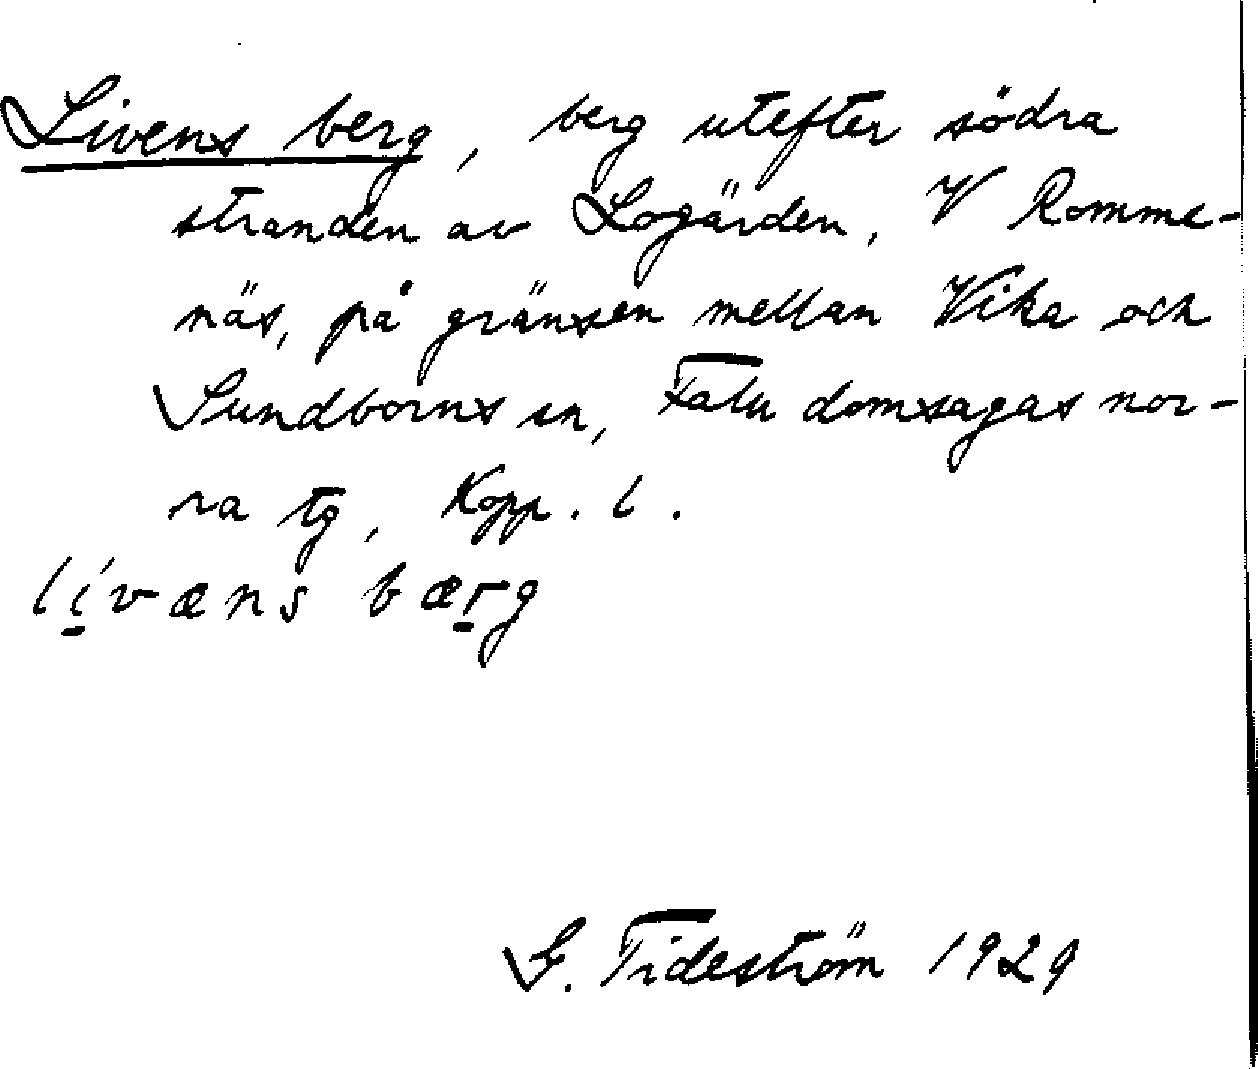 Livens berg, berg utefter södra
stranden av Logärden, V Romme-
näs, på gränsen mellan Vika och
Sundborns sn, Falu domsagas nor-
ra tg, Kopp. l.
lí̱væns bæṟg
G. Tideström 1929